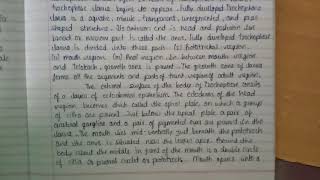 trochophore larva begins to appear. Fully developed Trochophore
larva is a aquatic, minute, transparent, unsegmented and pear
shaped structure. Its anterior end is broad and posterior
narrow part is called the anus. Fully developed trochophore
larva is divided into three parts. (i) Pretrochal region.
(ii) mouth region. (iii) Anal region. In between mouth region
and telotroch, growth zone is present. The growth zone of larva
forms all the segments and parts of trunk region of adult
The external surface of the body of Trochophore consists
of a layer of ectodermal epithelium. The ectoderm of the broad
region becomes thick called the apical plate, on which a group
of cilia are present. Just below the apical plate a pair of
cerebral ganglia and a pair of pigmented eyes are present in the
larva. The mouth lies mid-ventrally just beneath the prototroch
and the anus is situated near the lower apex. Around the
body about the middle in front of the mouth is a double circle
of cilia or preoral circlet or prototroch. Mouth opens into a